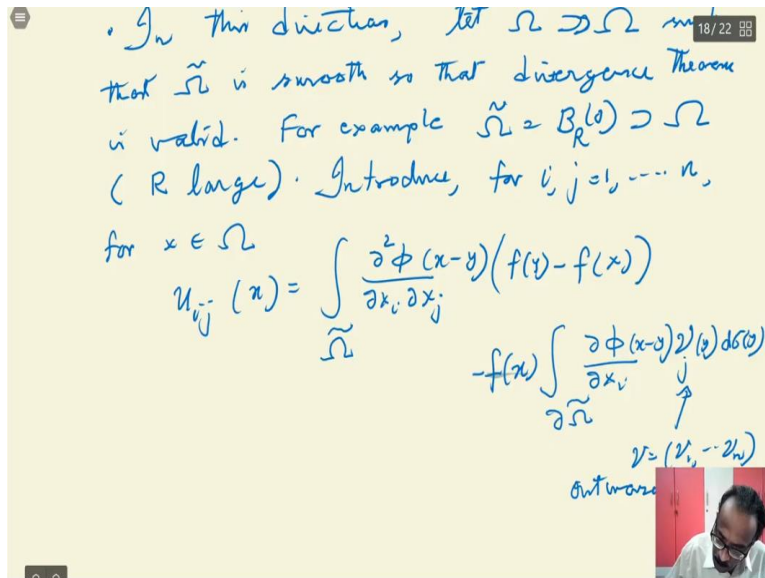 . In this direction, let Ω ⊃⊃ Ω such
18/22
that Ω̃ is smooth so that divergence Theorem
is valid. For example Ω̃ = B_R(0) ⊃ Ω
( R large). Introduce, for i, j = 1, ---- n,
for x ∈ Ω
u_ij (x) = ∫_Ω̃ ∂²ϕ(x-y)/∂x_i ∂x_j (f(y) - f(x))
-f(x) ∫_∂Ω̃ ∂ϕ(x-y)/∂x_i ν_j(y) dσ(y)
ν = (ν_1, -- ν_n)